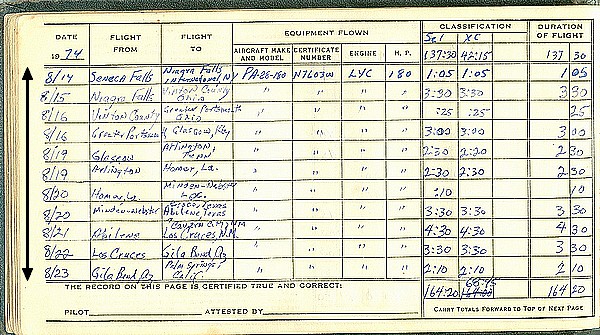 DATE FLIGHT FROM FLIGHT TO EQUIPMENT FLOWN CLASSIFICATION DURATION OF FLIGHT
1974 AIRCRAFT MAKE AND MODEL CERTIFICATE NUMBER ENGINE H.P. Sel XC
137:30 42:15 137 30
8/14 Seneca Falls Niagra Falls International, NY LYC 180 1:05 1:05 1 05
8/15 Niagra Falls Vinton County Ohio " " " " 3:30 3:30 3 30
8/16 Vinton County Greater Portsmouth Ohio " " " " :25 :25 25
8/16 Greater Portsmouth Glasgow, Ky " " " " 3:00 3:00 3 00
8/19 Glasgow Arlington, Tenn " " " " 2:30 2:30 2 30
8/19 Arlington Homer, La. " " " " 2:30 2:30 2 30
8/20 Homer, La. Minden-Webster " " " " :10 10
8/20 Minden-Webster Abilene Texas " " " " 3:30 3:30 3 30
8/21 Abilene Las Cruces N.M. " " " " 4:30 4:30 4 30
8/22 Los Cruces Gila Bend Az " " " " 3:30 3:30 3 30
8/23 Gila Bend Az Palm Springs Calif " " " " 2:10 2:10 2 10
THE RECORD ON THIS PAGE IS CERTIFIED TRUE AND CORRECT: 164:20 164 20
PILOT ATTESTED BY CARRY TOTALS FORWARD TO TOP OF NEXT PAGE